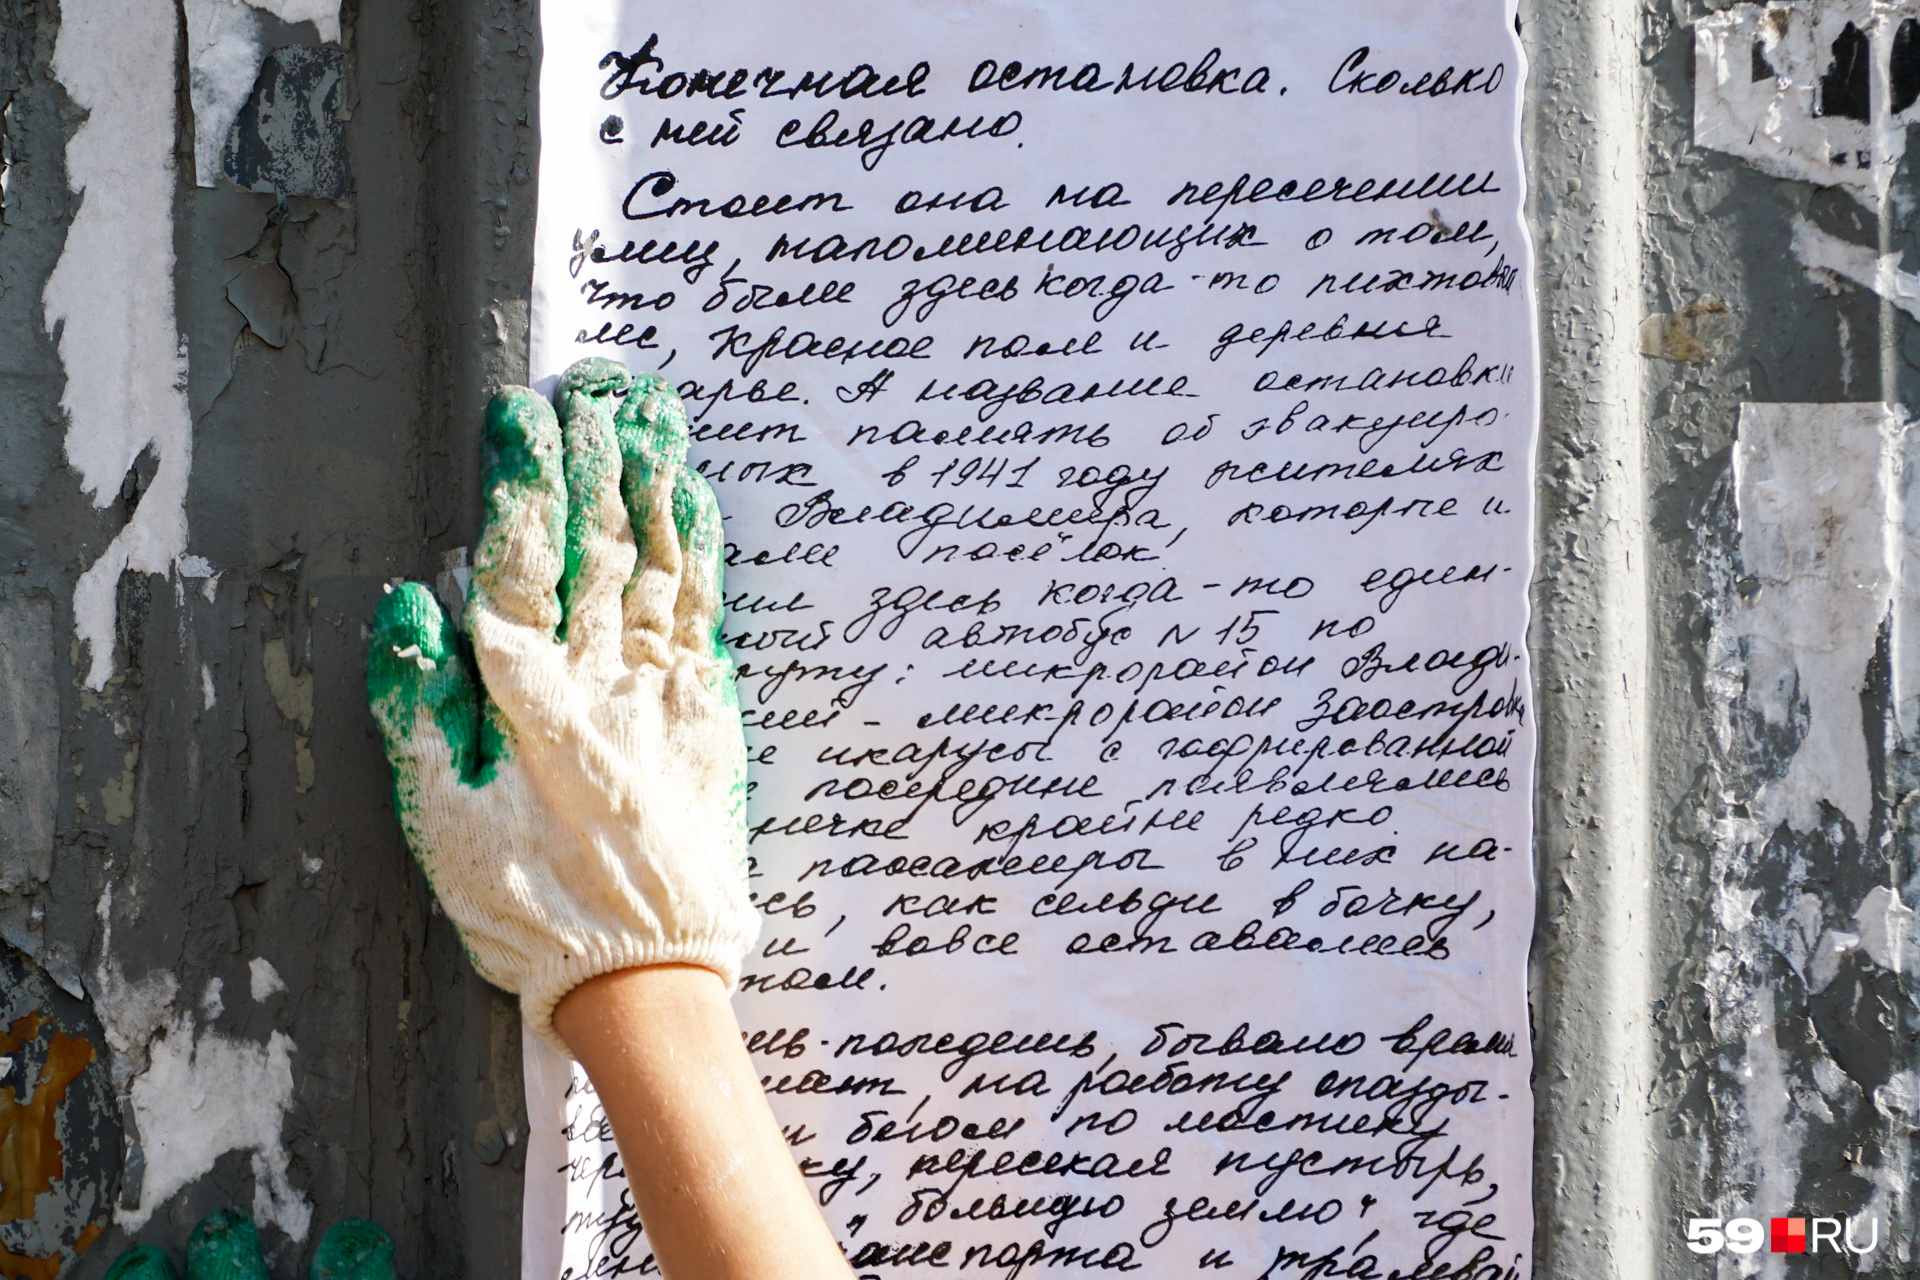 Конечная остановка. Сколько
с ней связано.
Стоит она на пересечении
улиц, напоминающих о том,
что были здесь когда-то пихтовы
ле, Красное поле и деревня
арье. А название остановки
ит память об эвакуиро-
ных в 1941 году жителях
Владимира, которые и
али посёлок
ил здесь когда-то един-
ный автобус № 15 по
руту: микрорайон Влади-
кий - микрорайон Заостровка
е икарусы с гофрированной
посередине появлялись
нечке крайне редко.
пассажиры в них на-
сь, как сельди в бочку,
и вовсе оставались
том.
шь-пождешь, бывало время
на работу опазды-
и бегом по мостику
чер ку, пересекая пустырь,
„большую землю", где
анспорта и трамвай
59 RU